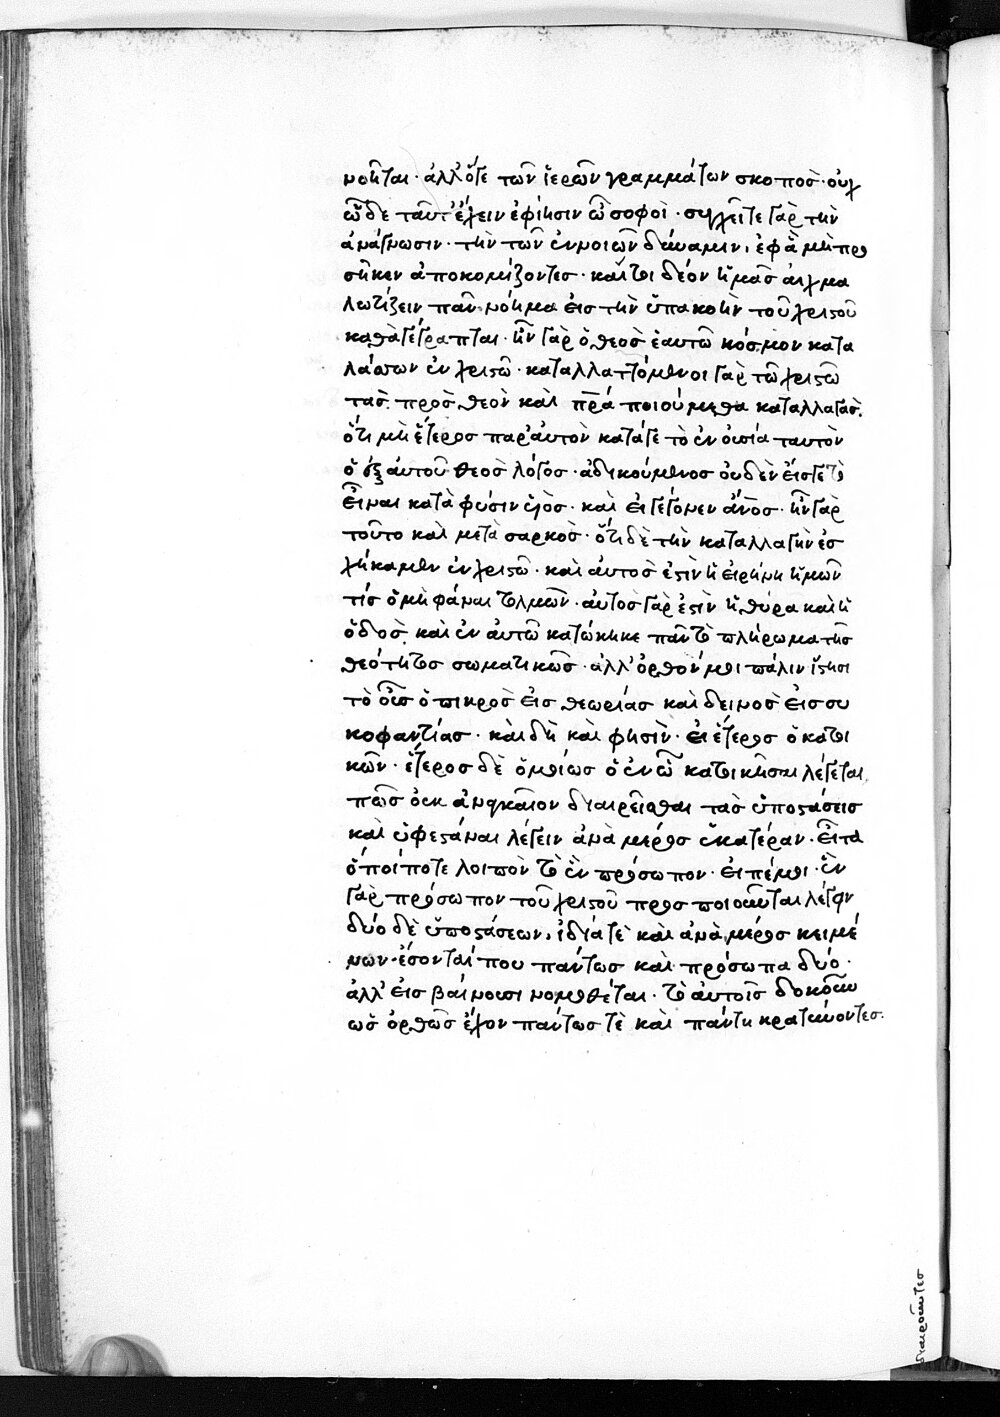 νοῆται· ἀλλ' ὅ γε τῶν ἱερῶν γραμμάτων σκοπὸσ· οὐχ
ὧδε ταῦτ' ἔχειν ἐφίησιν ὦ σοφοὶ· συγχεῖτε γὰρ τὴν
ἀνάγνωσιν· τὴν τῶν ἐννοιῶν δύναμιν, ἐφ' ἃ μὴ προ
σῆκεν ἀποκομίζοντεσ· καίτοι δέον ἡμᾶσ αἰχμα
λωτίζειν πᾶν νόημα εἰσ τὴν ὑπακοὴν τοῦ χριστοῦ
καθὰ γέγραπται· ἦν γὰρ ὁ θεὸσ ἑαυτῶ κόσμον κατα
λάσσων ἐν χριστῶ· καταλλαττόμενοι γὰρ τῶ χριστῶ
τὰσ πρὸσ θεὸν καὶ πρα ποιούμεθα καταλλαγάσ.
ὅτι μὴ ἕτεροσ παρ' αὐτὸν κατά γε τὸ ἐν οὐσία ταυτὸν
ὁ ἐξ αὐτοῦ θεὸσ λόγοσ· ἀδικούμενοσ οὐδὲν εἴσ γε τὸ
εἶναι κατὰ φύσιν υἱόσ· καὶ εἰ γέγονεν ἄνοσ· ἦν γὰρ
τοῦτο καὶ μετὰ σαρκόσ· ὅτι δὲ τὴν καταλλαγὴν ἐσ
χήκαμεν ἐν χριστῶ· καὶ αὐτόσ ἐστιν ἡ εἰρήνη ἡμῶν
τίσ ὁ μὴ φάναι τολμῶν· αὐτὸσ γάρ ἐστιν ἡ θύρα καὶ ἡ
ὁδόσ. καὶ ἐν αὐτῶ κατώκηκε πᾶν τὸ πλήρωμα τῆσ
θεότητοσ σωματικῶσ· ἀλλ' ὀρθὸν μοι πάλιν ἵστησι
τὸ οὖσ ὁ πικρὸσ εἰσ θεωρίασ καὶ δεινὸσ εἰσ συ
κοφαντίασ· καὶ δὴ καὶ φησὶν· εἰ ἕτεροσ ὁ κατοι
κῶν· ἕτεροσ δὲ ὁμοίωσ ὁ ἐν ὧ κατοικῆσαι λέγεται,
πῶσ οὐκ ἀναγκαῖον διαιρεῖσθαι τὰσ ὑποστάσεισ
καὶ ὑφεστάναι λέγειν ἀνὰ μέροσ ἑκατέραν· εἶτα
ὁποῖ ποτε λοιπὸν τὸ ἓν πρόσωπον· εἰπέ μοι· ἓν
γὰρ πρόσωπον τοῦ χριστοῦ προσποιοῦνται λέγειν
δύο δὲ ὑποστάσεων, ἰδία τὲ καὶ ἀνὰ μέροσ κειμέ
νων· ἔσονταί που πάντωσ καὶ πρόσωπα δύο·
ἀλλ' εἰσβαίνουσι νομοθέται· τὸ αὐτοῖσ δοκοῦν
ὡσ ὀρθῶσ ἔχον πάντωσ τὲ καὶ πάντη κρατύνοντεσ.
διαιροῦντεσ